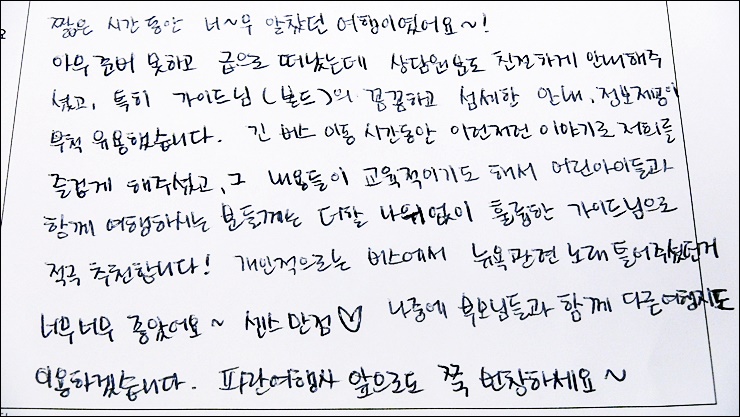 짧은 시간동안 너~무 알찼던 여행이였어요~!
아무 준비 못하고 급으로 떠났는데 상담원분도 친절하게 안내해주
셨고, 특히 가이드님(본드)의 꼼꼼하고 섬세한 안내, 정보제공이
무척 유용했습니다. 긴 버스 이동 시간동안 이런저런 이야기로 저희를
즐겁게 해주셨고, 그 내용들이 교육적이기도 해서 어린아이들과
함께 여행하시는 분들께는 더할 나위없이 훌륭한 가이드님으로
적극 추천합니다! 개인적으로는 버스에서 뉴욕관련 노래 틀어주셨던거
너무너무 좋았어요~ 센스만점♡ 나중에 부모님들과 함께 다른여행지도
이용하겠습니다. 파란여행사 앞으로도 쭉 번창하세요~